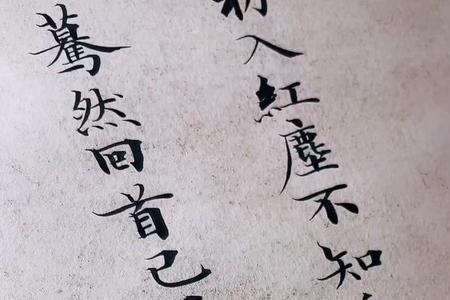 初入紅塵不知
驀然回首已